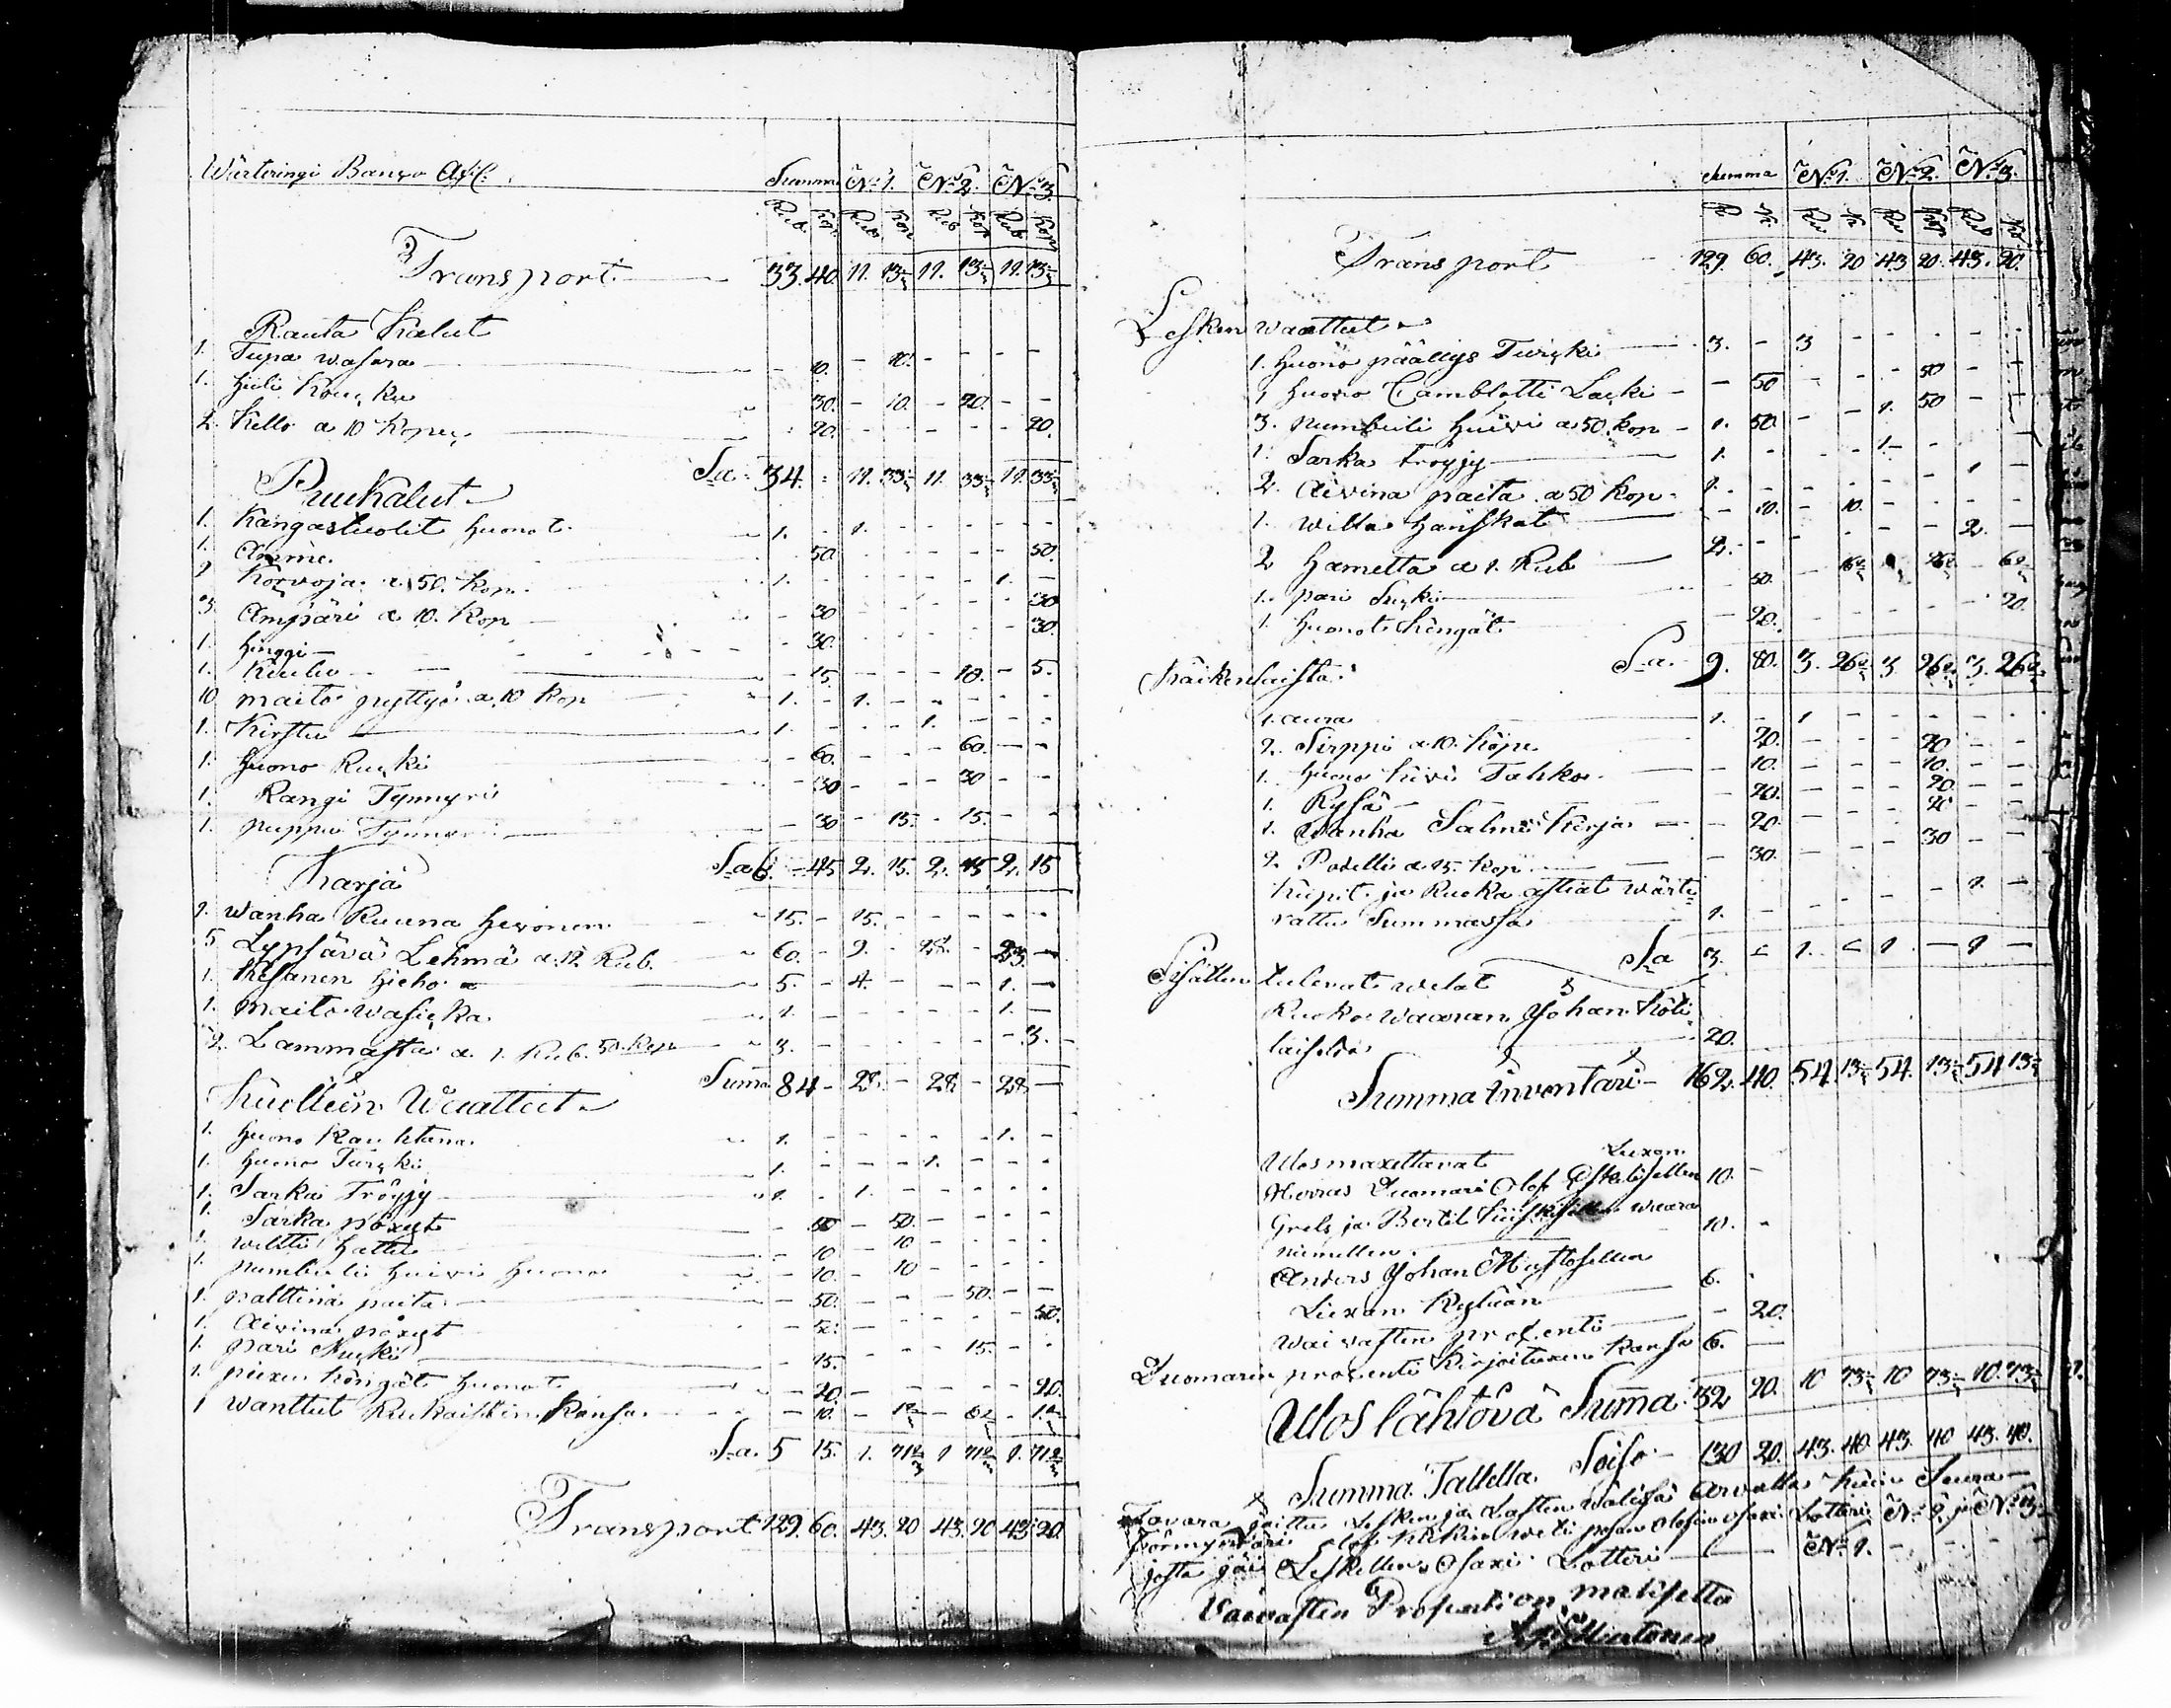 Wärteringi Banco Summa No 1. No 2. No 3.
Rub Kop Rub Kop Rub Kop Rub Kop
Transport 33. 40. 11. 13 1/3 11. 13 1/3 11. 13 1/3
Rauta Kalut
1. Tupa wasara - 10. - 10. - - - -
1. - 30. - 10. - 20. - -
2. Kello a 10 Kopec - 20. - - - - - 20.
Sa 34. - 11. 33 1/3 11. 33 1/3 11. 33 1/3
Puukalut
1. Kangastuolit huonot 1. - 1. - - - - -
1. Amme. - 50. - - - - - 50.
2 Korvoja a 50. Kop. 1. - - - - - 1. -
3. Ampäri a 10. Kop - 30 - - - - - 30
1. Hinggi - 30. - - - - - 30.
1. - 15. - - - 10. - 5.
10 maito pyttyä a 10 Kop 1. - 1. - - - - -
1. Kirstu 1. - - - 1. - - -
1. huono Rucki - 60. - - - 60. - -
1. Rangi Tynnyri - 30 - - - 30 - -
1. puppu - 30 - 15. - 15. - -
Sa 6. 45 2. 15. 2. 15. 2. 15
Karja
1. wanha Ruuna hevonen 15. - 15. - - - - -
5 Lypsävä Lehmä a 12. Rub. 60. - 9. - 28. - 23. -
1. Kesänen hieho 5. - 4. - - - 1. -
1. maito wasicka 1. - - - - - 1. -
2. Lammasta a 1. Rub. 50 Kop 3. - - - - - 3. -
Suma 84 - 28. - 28. - 28. -
Kuolleen Waatteet
1. huono Kauhtana 1. - - - - - 1. -
1. huono Turcki 1. - - - 1. - - -
1. Sarka Tröyjy 1. - 1. - - - - -
1. Sarka pöxyt - 50 - 50. - - - -
1. hattu - 10 - 10 - - - -
1. pumbuli huivi huono - 10. - 10 - - - -
1. palttina paita - 50. - - - 50. - -
1. Aivina pöxyt - 50. - - - - - 50.
1. pari Sucki - 15. - - - 15. - -
1. piexu Kengät huonot - 20. - - - - - 20.
1 wanttut Rukaisten Kansa - 10.
Sa. 5 15. 1. 71 2/3 1 71 2/3 1. 71 2/3
Transport 129. 60. 43. 20 43. 20 43. 20.
Summa No 1. No 2. No 3.
Transport 129. 60. 43. 20 43 20. 43. 20.
Lesken waatteet
1. huono päällys Turcki 3. - 3 - - - - -
1 huono Camblotti Lacki - 50 - - - 50 - -
3. pumbuli huivi a 50. kop 1. 50. - - 1. 50 - -
1. Sarka tröyjy 1. - - - 1. - - -
2. Aivina paita a 50 Kop. 1. - - - - - 1 -
1. willa hansikat - 10. - 10. - - - -
2 hametta a 1. Rub 2. - - - - - 2. -
1. pari Sucki - 50. - 16 2/3
1. huonot Kengät - 20. - - - - - 20.
Sa. 9. 80. 3. 26 2/3 3 26 2/3 3. 26 2/3
Kaikenlaista
1. aura 1. - 1 - - - - -
2. Sirppi a 10. Kope - 20. - - - 20 - -
1. huono kivi Tahko - 10. - - - 10. - -
1. Rysä - 20. - - - 20 - -
1. Wanha Salmi Kirja - 20. - - - 20 - -
2. Potelli a 15. Kop - 30. - - - 30 - -
Kupit ja Ruoka astiat wärte=
rattu Summassa 1. - - - - - 1. -
Sa 3. - 1. - 1. - 1 -
Sisällen tulevat welat
Ruoko Waaran Johan Köti=
laiselda 20.
Summa inventari 162. 40. 54. 13 1/3 54. 13 1/3 54 13 1/3
Ulosmaxettavat Liexan
Herras Duomari Olof Eskelisellen 10. -
Grels ja Bertil waara
niemellen 10. -
Anders Johan Mustosellen 6. -
Liexan Kylään - 20.
Waivasten procenti
Duomarin procenti Kirjoituxen Kansa 6. -
Uloslähtövä Suma 32 20. 10 73 1/3 10 73 1/3 10. 73 1/3
Summa Tallella Soiso 130 20. 43. 40 43. 40 43. 40.
Tavara jaittu Lesken ja Lasten wälisä Arvalla Kuin Seura
Förmyndäri Olof Lotteri No 2 ja No 3
josta jäi Leskellen Osaxi Lotteri No 1.
Vaivasten Proportion maxsetta